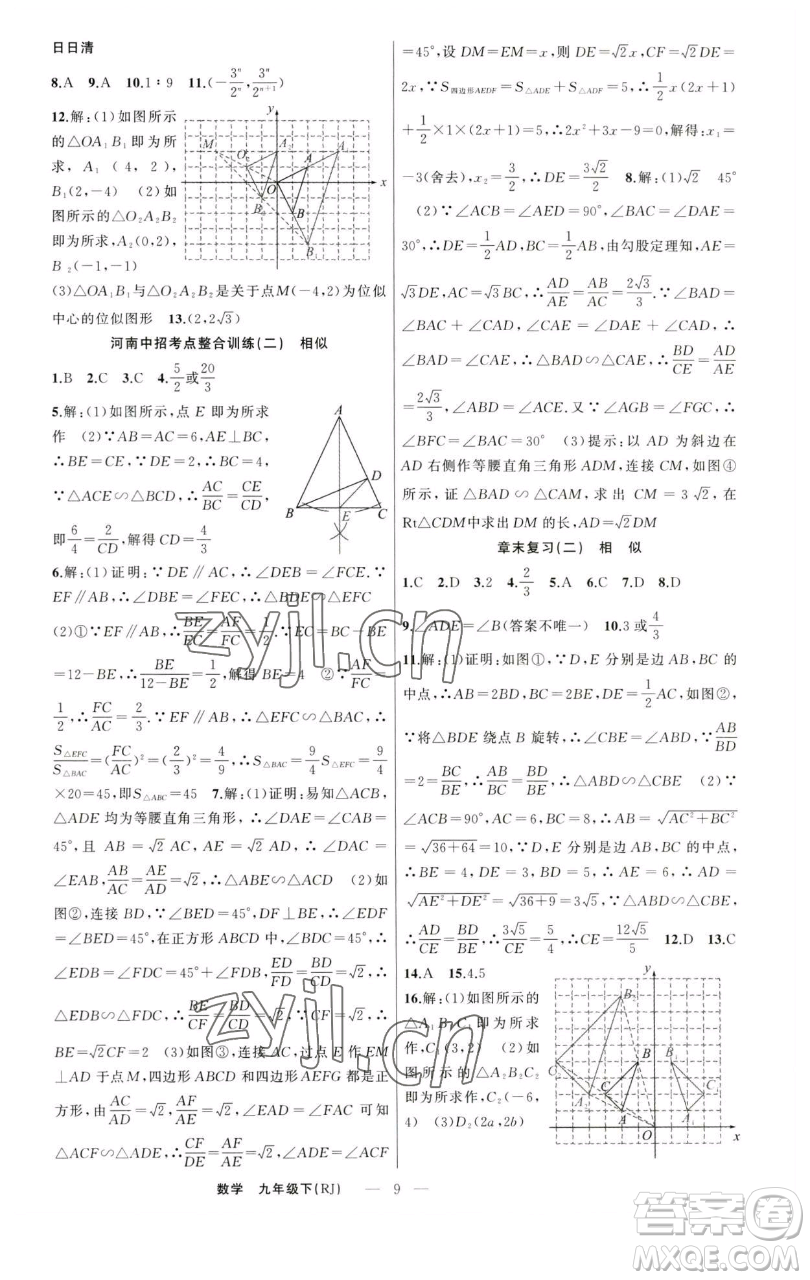 日日清
8.A 9.A 10.1∶9 11.(-3ⁿ/2ⁿ,3ⁿ/2ⁿ⁺¹)
12.解:(1)如图所示
的△OA₁B₁即为所
求,A₁(4,2),
B₁(2,-4) (2)如
图所示的△O₂A₂B₂
即为所求,A₂(0,2),
B₂(-1,-1)
(3)△OA₁B₁与△O₂A₂B₂是关于点M(-4,2)为位似
中心的位似图形 13.(2,2√3)
河南中招考点整合训练(二) 相似
1.B 2.C 3.C 4.5/2或20/3
5.解:(1)如图所示,点E即为所求
作 (2)∵AB=AC=6,AE⊥BC,
∴BE=CE,∴DC=2,∵BC=4,
∵△ACE∽△BCD,∴AC/BC=CE/CD,
即6/4=2/CD,∴CD=4/3
6.解:(1)证明:∵DE∥AC,∴∠DEB=∠FCE.∵
EF∥AB,∴∠DBE=∠FEC,∴△BDE∽△EFC
(2)①∵EF∥AB,∴BE/EC=AF/FC=1/2.∵EC=BC-BE
=12-BE,∴BE/12-BE=1/2,解得BE=4 ②∵AF/FC=
1/2,∴FC/AC=2/3.∵EF∥AB,∴△EFC∽△BAC,∴
S△EFC/S△BAC=(FC/AC)²=(2/3)²=4/9,∴S△BAC=9/4S△EFC=9/4
×20=45,即S△ABC=45 7.解:(1)证明:易知△ACB,
△ADE均为等腰直角三角形,∴∠DAE=∠CAB=
45°,且AB=√2AC,AE=√2AD,∴∠DAC=
∠EAB,AB/AC=AE/AD,∴△ABE∽△ACD (2)如
图②,连接BD,∵∠BED=45°,DF⊥BE,∴∠EDF
=∠BED=45°,在正方形ABCD中,∠BDC=45°,
∴∠EDB=∠FDC=45°-∠BDF,∵ED/FD=BD/CD=√2,
∴△EDB∽△FDC,∴BE/CF=BD/CD=√2,∴
BE=√2CF=2 (3)如图③,连接AC,过点E作EM
⊥AD于点M,四边形ABCD和四边形AEFG都是正
方形,由AC/AD=√2,AF/AE=√2,∠DAE=∠FAC可知
△ACF∽△ADE,∴CF/DE=AF/AE=√2,∴∠ADE=∠ACF
=45°,设DM=EM=x,则DE=√2x,CF=√2DE=
2x,∵S四边形AEDF=S△ADE+S△ADF=5,∴1/2x(2x+1)
+1/2×1×(2x+1)=5,∴2x²+3x-9=0,解得:x₁=
-3(舍去),x₂=3/2,∴DE=3√2/2 8.解:(1)√2 45°
(2)∵∠ACB=∠AED=90°,∠BAC=∠DAE=
30°,∴DE=1/2AD,BC=1/2AB,由勾股定理知,AE=
√3DE,AC=√3BC,∴AD/AE=AB/AC=2√3/3.∵∠BAD=
∠BAC+∠CAD,∠CAE=∠CAD+∠DAE,∴
∠BAD=∠CAE,∴△BAD∽△CAE,∴BD/CE=AD/AE
=2√3/3,∠ABD=∠ACE.又∵∠AGB=∠FGC,∴
∠BFC=∠BAC=30° (3)提示:以AD为斜边在
AD右侧作等腰直角三角形ADM,连接CM,如图④
所示,证△BAD∽△CAM,求出CM=3√2,在
Rt△CDM中求出DM的长,AD=√2DM
章末复习(二) 相 似
1.C 2.D 3.2 4.2/3 5.A 6.C 7.D 8.D
9.∠ADE=∠B(答案不唯一) 10.3或4/3
11.解:(1)证明:如图①,∵D,E分别是边AB,BC的
中点,∴AB=2BD,BC=2BE,DE=1/2AC,如图②,
∵将△BDE绕点B旋转,∴∠DBA=∠CBE,∵AB/BD
=2=BC/BE,∴BD/BE=AB/BC,∴△ABD∽△CBE (2)∵
∠ACB=90°,AC=6,BC=8,∴AB=√AC²+BC²
=√36+64=10,∵D,E分别是边AB,BC的中点,
∴BE=4,DE=3,BD=5,∴AD=
√AE²+DE²=√36+9=3√5,∵△ABD∽△CBE,∴
AD/CE=BD/BE,∴3√5/CE=5/4,∴CE=12√5/5 12.D 13.C
14.A 15.4.5
16.解:(1)如图所示的
△A₁B₁C₁即为所求
作,C₁(3,2) (2)如
图所示的△A₂B₂C₂
即为所求作,C₂(-6,
4) (3)D₂(2a,2b)
数学 九年级下(RJ) — 9 —
zyjl.cn
zyjl.cn
答案圈
MXQE.COM